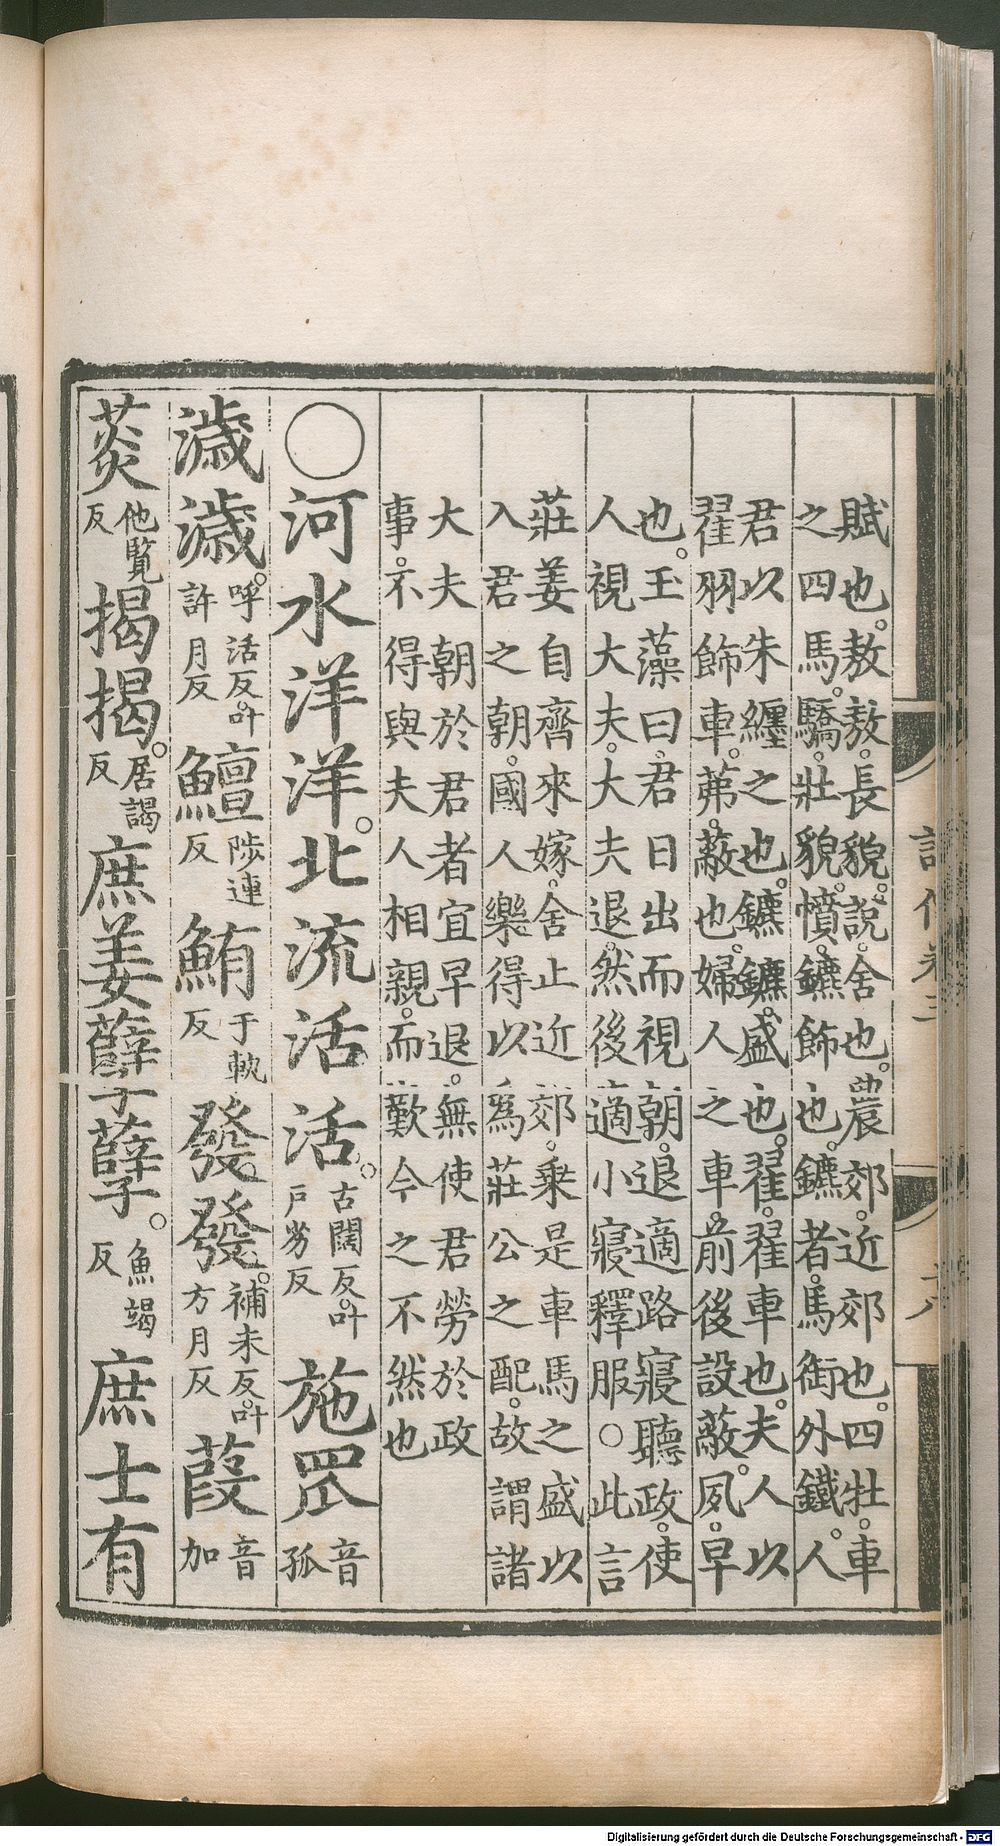 賦也敖敖長貌說舍也農郊近郊也四牡車
之四馬驕壯貌幩鑣飾也鑣者馬銜外鐵人
君以朱纏之也鑣鑣盛也翟翟車也夫人以
翟羽飾車茀蔽也婦人之車前後設蔽夙早
也玉藻曰君日出而視朝退適路寢聽政使
人視大夫大夫退然後適小寢釋服〇此言
莊姜自齊來嫁舍止近郊乘是車馬之盛以
入君之朝國人樂得以爲莊公之配故謂諸
大夫朝於君者宜早退無使君勞於政
事不得與夫人相親而歎今之不然也
〇河水洋洋北流活活古闊反叶戶劣反施罛音孤
濊濊呼活反叶許月反鱣陟連反鮪于軌反發發補末反叶方月反葭音加
菼他覽反揭揭居謁反庶姜孽孽魚竭反庶士有
Digitalisierung gefördert durch die Deutsche Forschungsgemeinschaft - DFG